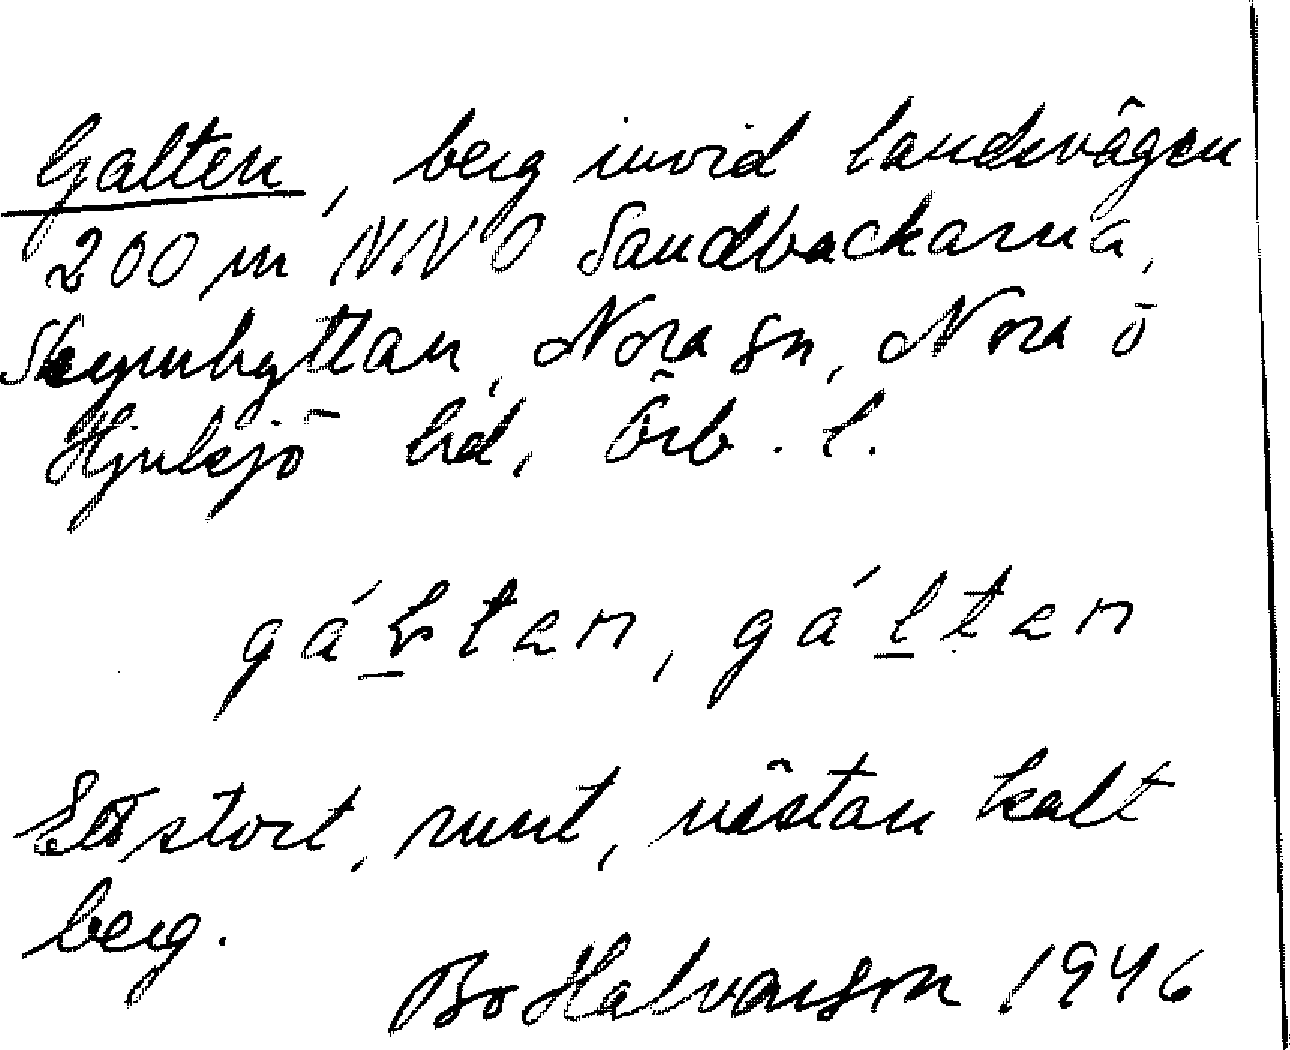 Galten, berg invid landsvägen
200 m NNO Sandbackarna,
Skrymhyttan, Nora sn, Nora o
Hjulsjö hd, Örb. l.
gáltan, gáltan
Ett stort, runt, nästan kalt
berg.
Bo Halvarson 1946